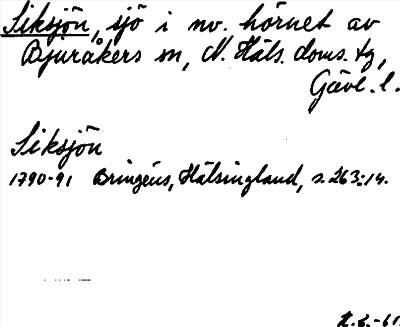 Siksjön, sjö i nv. hörnet av
Bjuråkers sn, N. Häls. doms. tg,
Gävl. l.
Siksjön
1790-91 Bringéus, Hälsingland, s. 263:14.
-61.